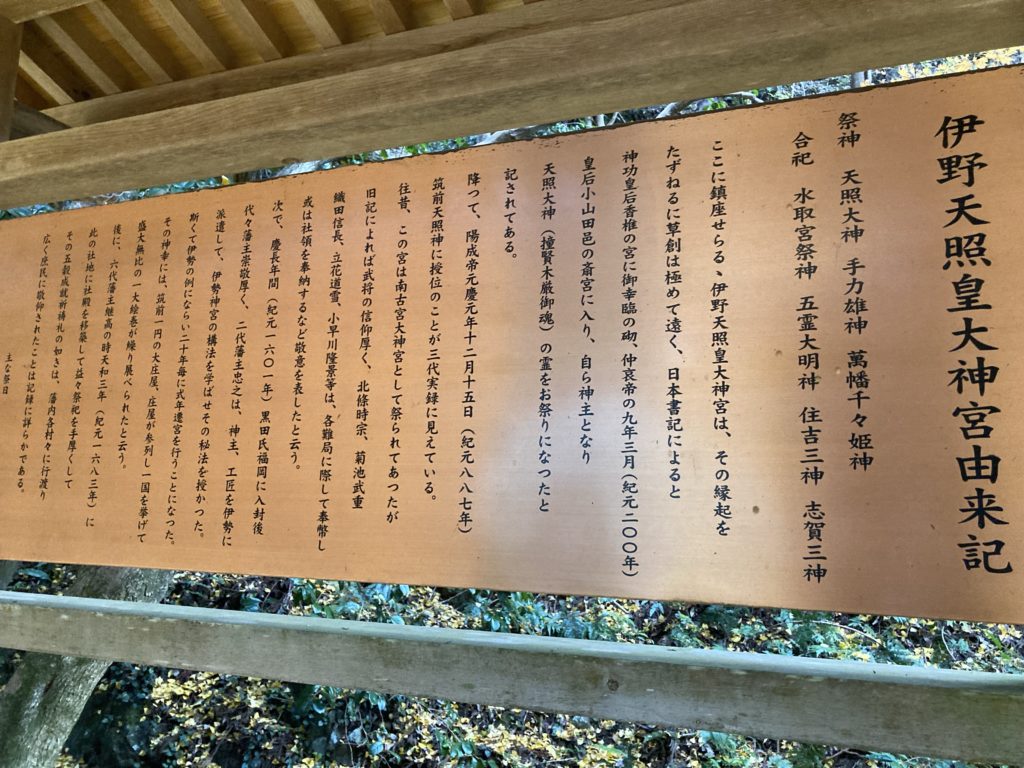 伊野天照皇大神宮由来記
祭神　天照大神　手力雄神　萬幡千々姫神
合祀　水取宮祭神　五霊大明神　住吉三神　志賀三神
ここに鎮座せらる、伊野天照皇大神宮は、その縁起を
たずねるに草創は極めて遠く、日本書記によると
神功皇后香椎の宮に御幸臨の砌、仲哀帝の九年三月（紀元二〇〇年）
皇后小山田邑の斎宮に入り、自ら神主となり
天照大神（撞賢木厳御魂）の霊をお祭りになつたと
記されてある。
降つて、陽成帝元慶元年十二月十五日（紀元八八七年）
筑前天照神に授位のことが三代実録に見えている。
往昔、この宮は南古宮大神宮として祭られてあったが
旧記によれば武将の信仰厚く、北條時宗、菊池武重
織田信長、立花道雪、小早川隆景等は、各難局に際して奉幣し
或は社領を奉納するなど敬意を表したと云う。
次で、慶長年間（紀元一六〇一年）黒田氏福岡に入封後
代々藩主崇敬厚く、二代藩主忠之は、神主、工匠を伊勢に
派遣して、伊勢神宮の構法を学ばせその秘法を授かった。
斯くて伊勢の例にならい二十年毎に式年遷宮を行うことになつた。
その神幸には、筑前一円の大庄屋、庄屋が参列し一国を挙げて
盛大無比の一大絵巻が繰り展べられたと云う。
後に、六代藩主継高の時天和三年（紀元一六八三年）に
此の社地に社殿を移築して益々祭祀を手厚くして
その五穀成就祈祷礼の如きは、藩内各村々に行渡り
広く庶民に敬仰されたことは記録に詳らかである。
主な祭日